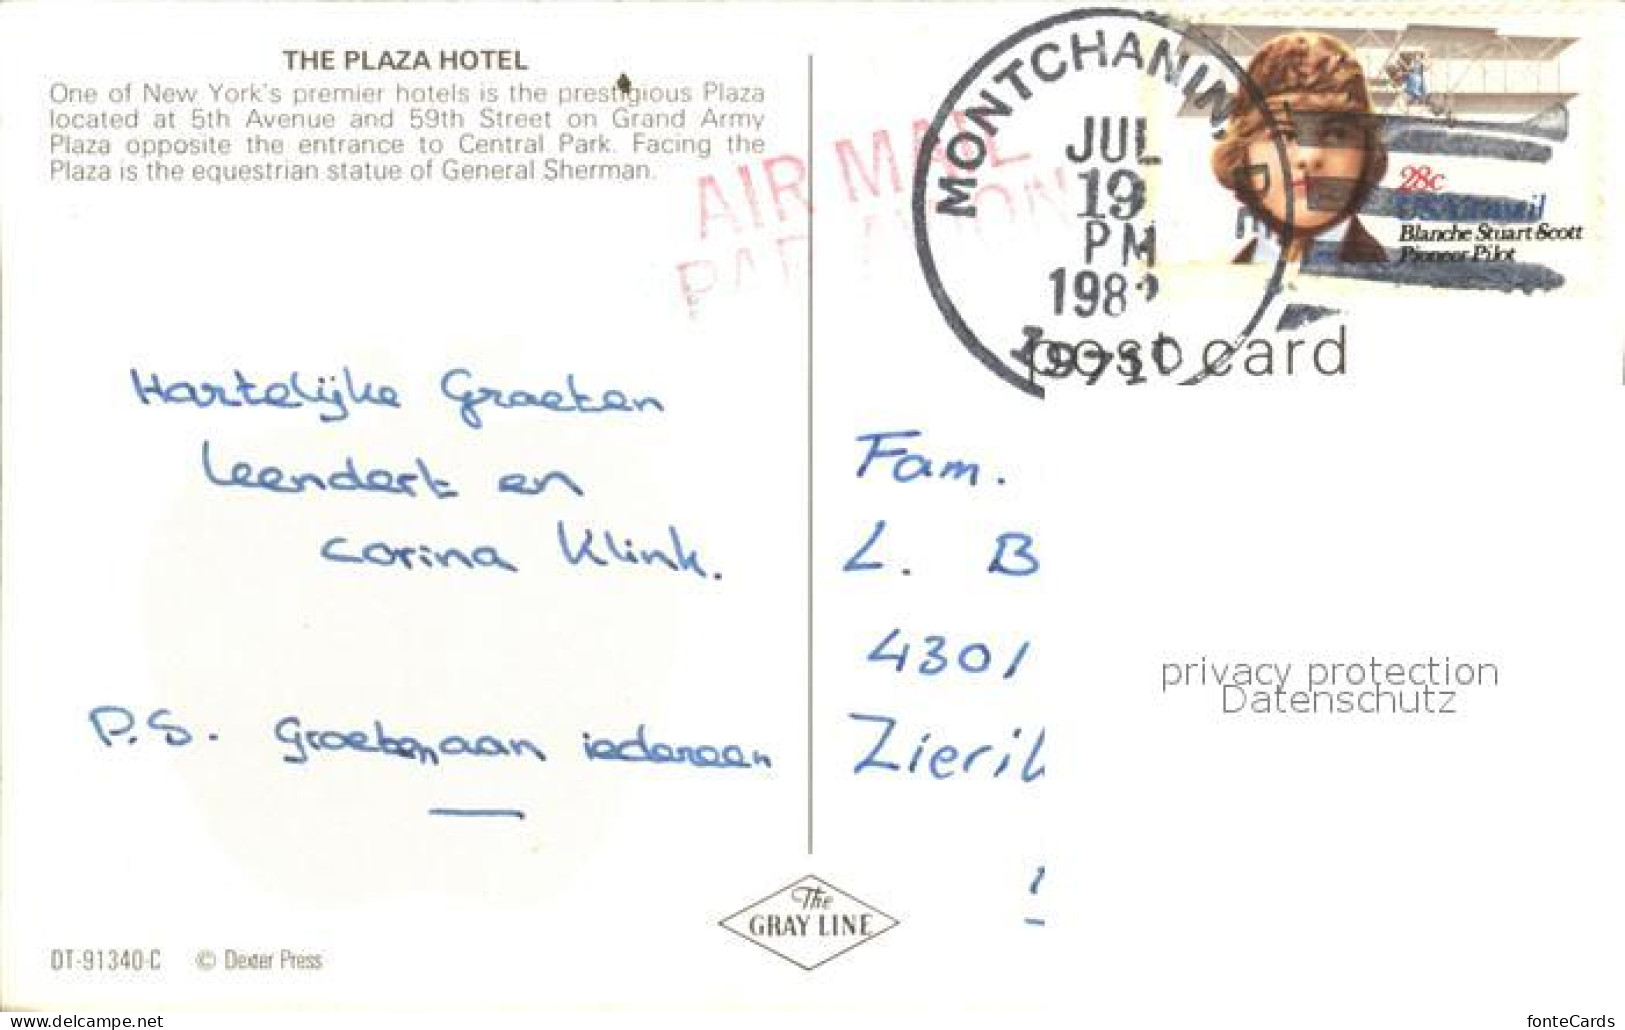 THE PLAZA HOTEL
One of New York's premier hotels is the prestigious Plaza
located at 5th Avenue and 59th Street on Grand Army
Plaza opposite the entrance to Central Park. Facing the
Plaza is the equestrian statue of General Sherman.
AIR MAIL
PAR AVION
MONTCHANIN, DE
JUL
19
PM
198
19710
28c
USAirmail
Blanche Stuart Scott
Pioneer Pilot
post card
Hartelijke Groeten
Leendert en
Corina Klink.
P.S. Groeten aan iedereen
Fam.
L. B
4301
Zierik
privacy protection
Datenschutz
The
GRAY LINE
DT-91340-C © Dexter Press
www.delcampe.net
fonteCards